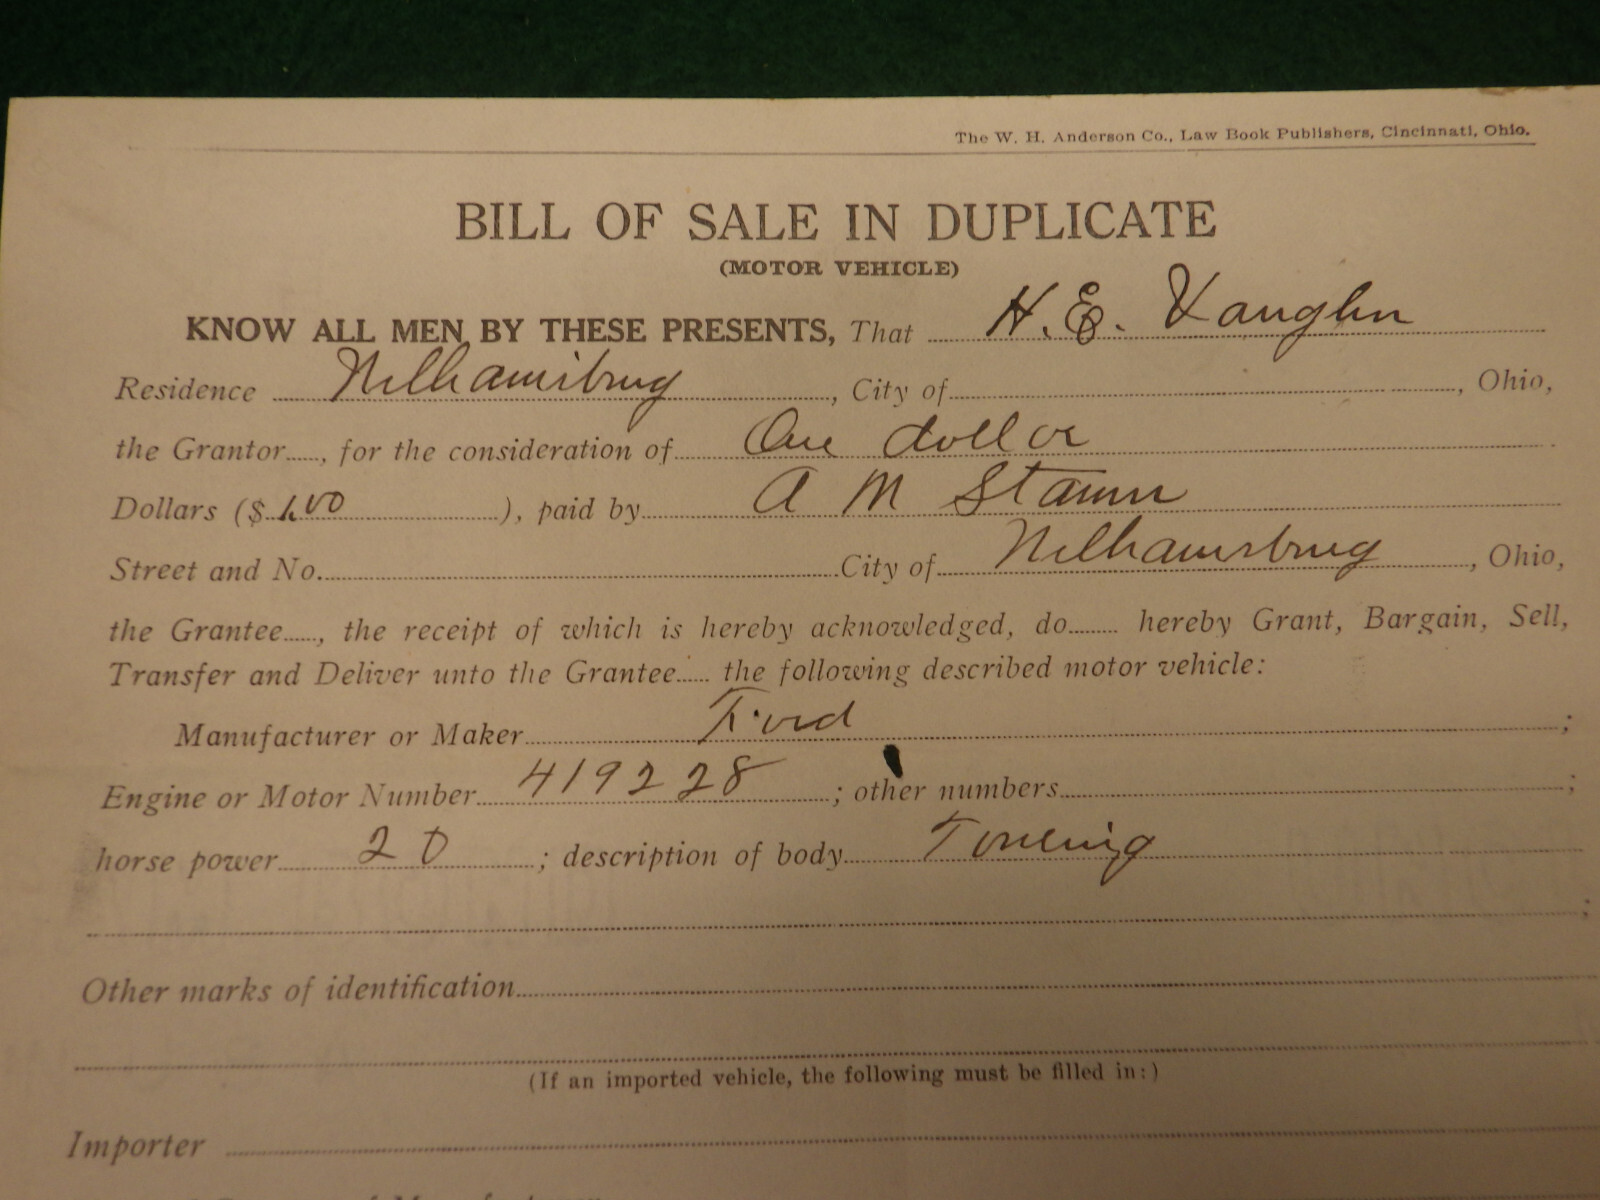 The W. H. Anderson Co., Law Book Publishers, Cincinnati, Ohio.
BILL OF SALE IN DUPLICATE
(MOTOR VEHICLE)
KNOW ALL MEN BY THESE PRESENTS, That H. E. Vaughn
Residence Williamsburg, City of, Ohio,
the Grantor, for the consideration of One dollar
Dollars ($ 1.00), paid by A M Stamm
Street and No. City of Williamsburg, Ohio,
the Grantee, the receipt of which is hereby acknowledged, do hereby Grant, Bargain, Sell,
Transfer and Deliver unto the Grantee the following described motor vehicle:
Manufacturer or Maker Ford;
Engine or Motor Number 419228; other numbers;
horse power 20; description of body Touring
;
Other marks of identification
(If an imported vehicle, the following must be filled in:)
Importer